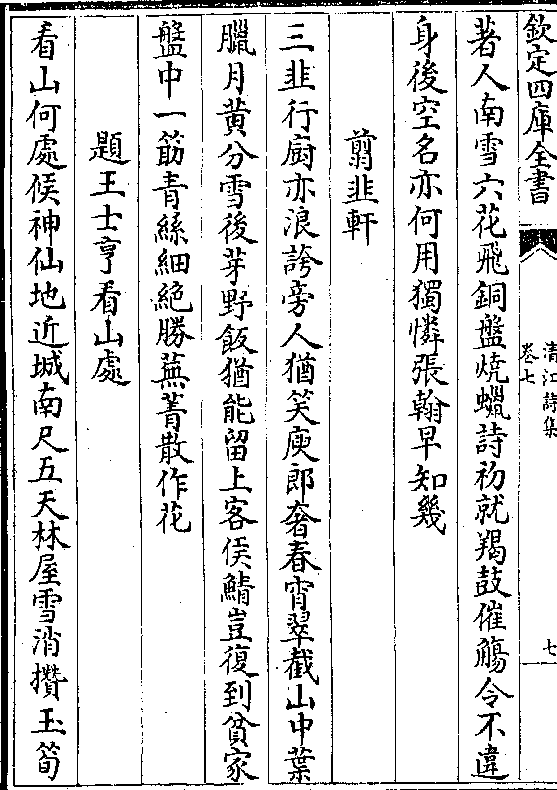 欽定四庫全書
清江詩集
卷七
七
著人南雪六花飛銅盤燒蠟詩初就羯鼓催觴令不違
身後空名亦何用獨憐張翰早知幾
翦韭軒
三韭行廚亦浪誇旁人猶笑庾郎奢春宵翠截山中葉
臘月黄分雪後芽野飯猶能留上客侯鯖豈復到貧家
盤中一筯青絲細絶勝蕪菁散作花
題王士亨看山處
看山何處候神仙地近城南尺五天林屋雪消攢玉筍